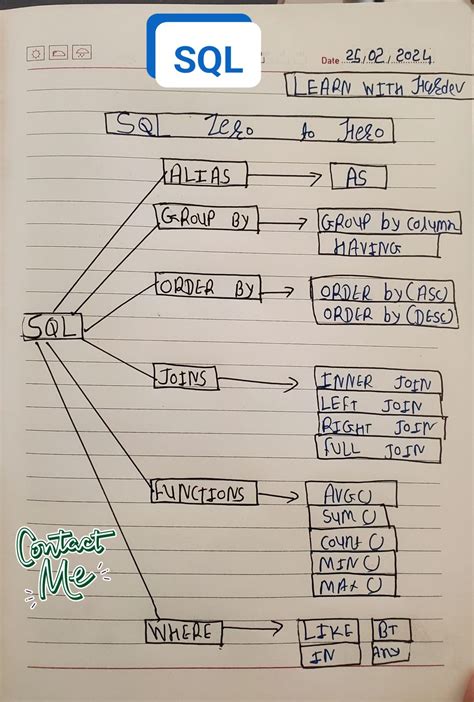 SQL
Date 25/02/2024
LEARN WITH Hardev
SQL Zero to Hero
ALIAS
AS
GROUP BY
GROUP by column
HAVING
ORDER BY
ORDER by (ASC)
ORDER by (DESC)
SQL
JOINS
INNER JOIN
LEFT JOIN
RIGHT JOIN
FULL JOIN
FUNCTIONS
AVG()
SUM()
count()
MIN()
MAX()
Contact
Me
WHERE
LIKE BT
IN Any